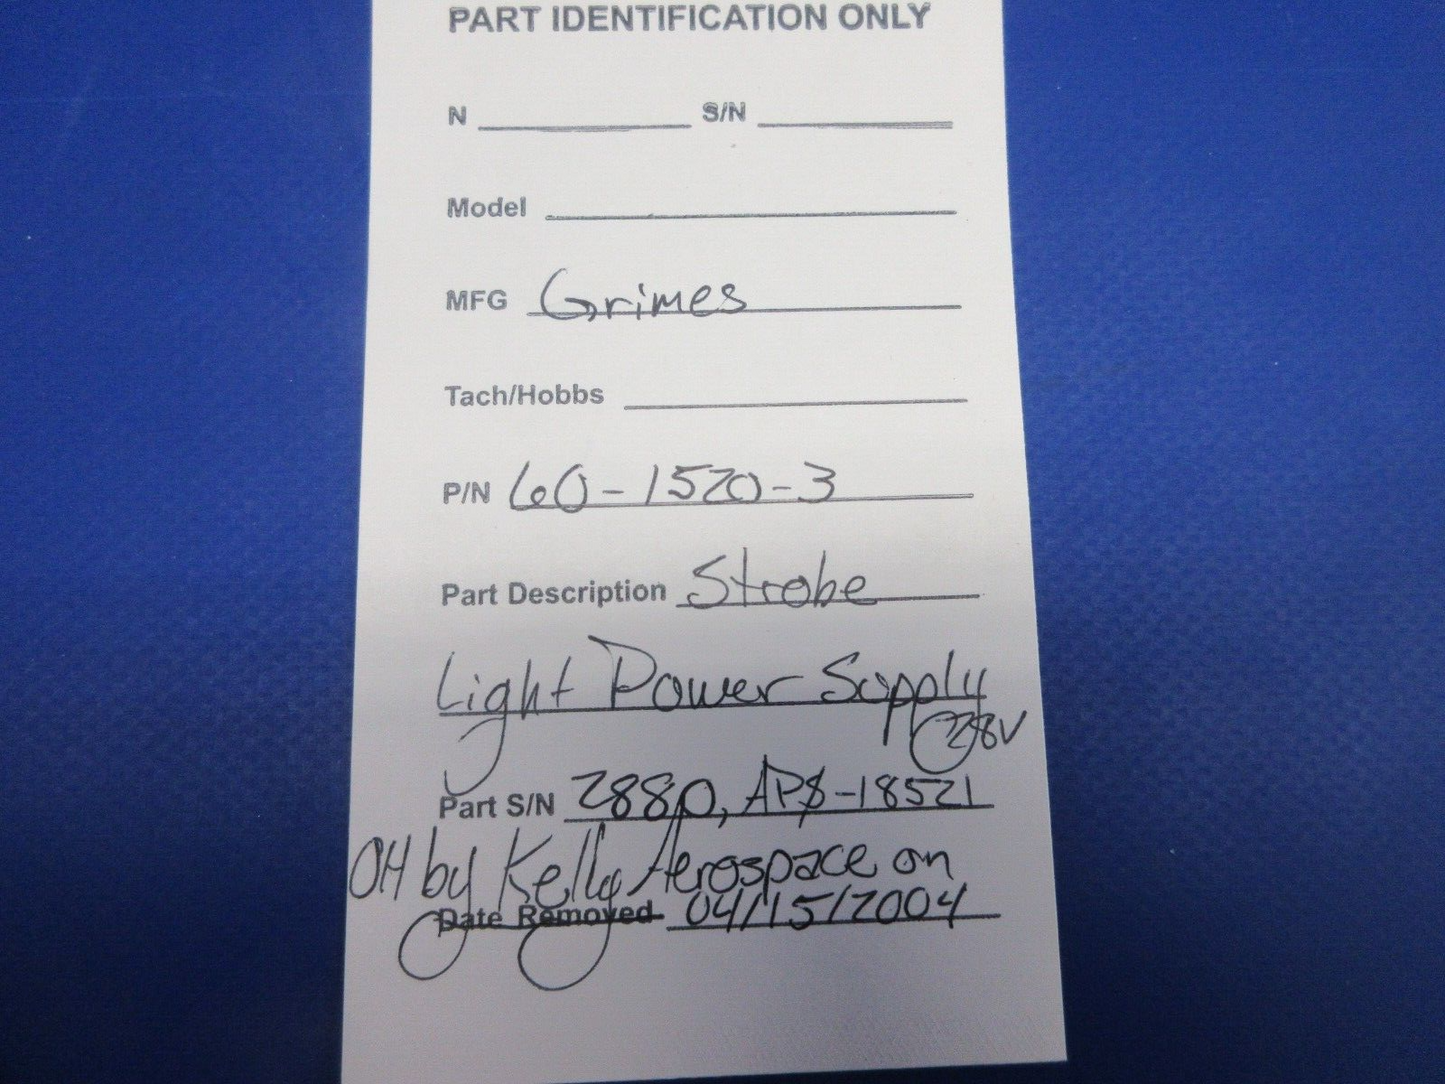 PART IDENTIFICATION ONLY
N S/N
Model
MFG Grimes
Tach/Hobbs
P/N 60-1520-3
Part Description Strobe
Light Power Supply
28V
Part S/N 2880, APS-18521
OH by Kelly Aerospace on
Date Removed 04/15/2004